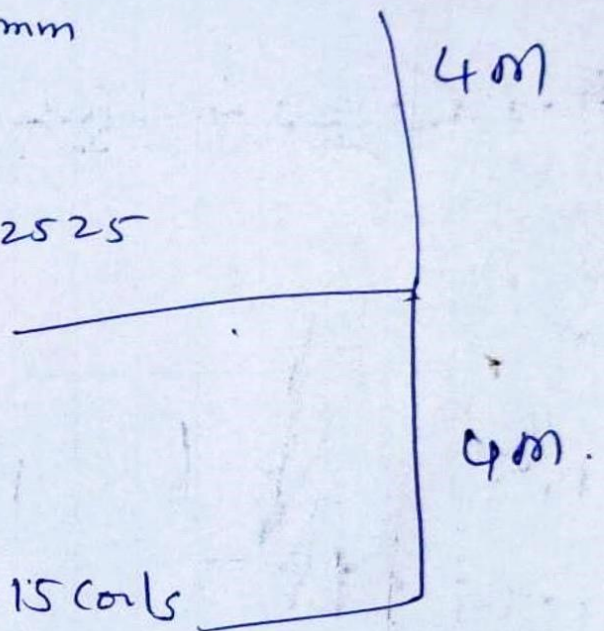 mm
4m
2525
4m.
15 Coils